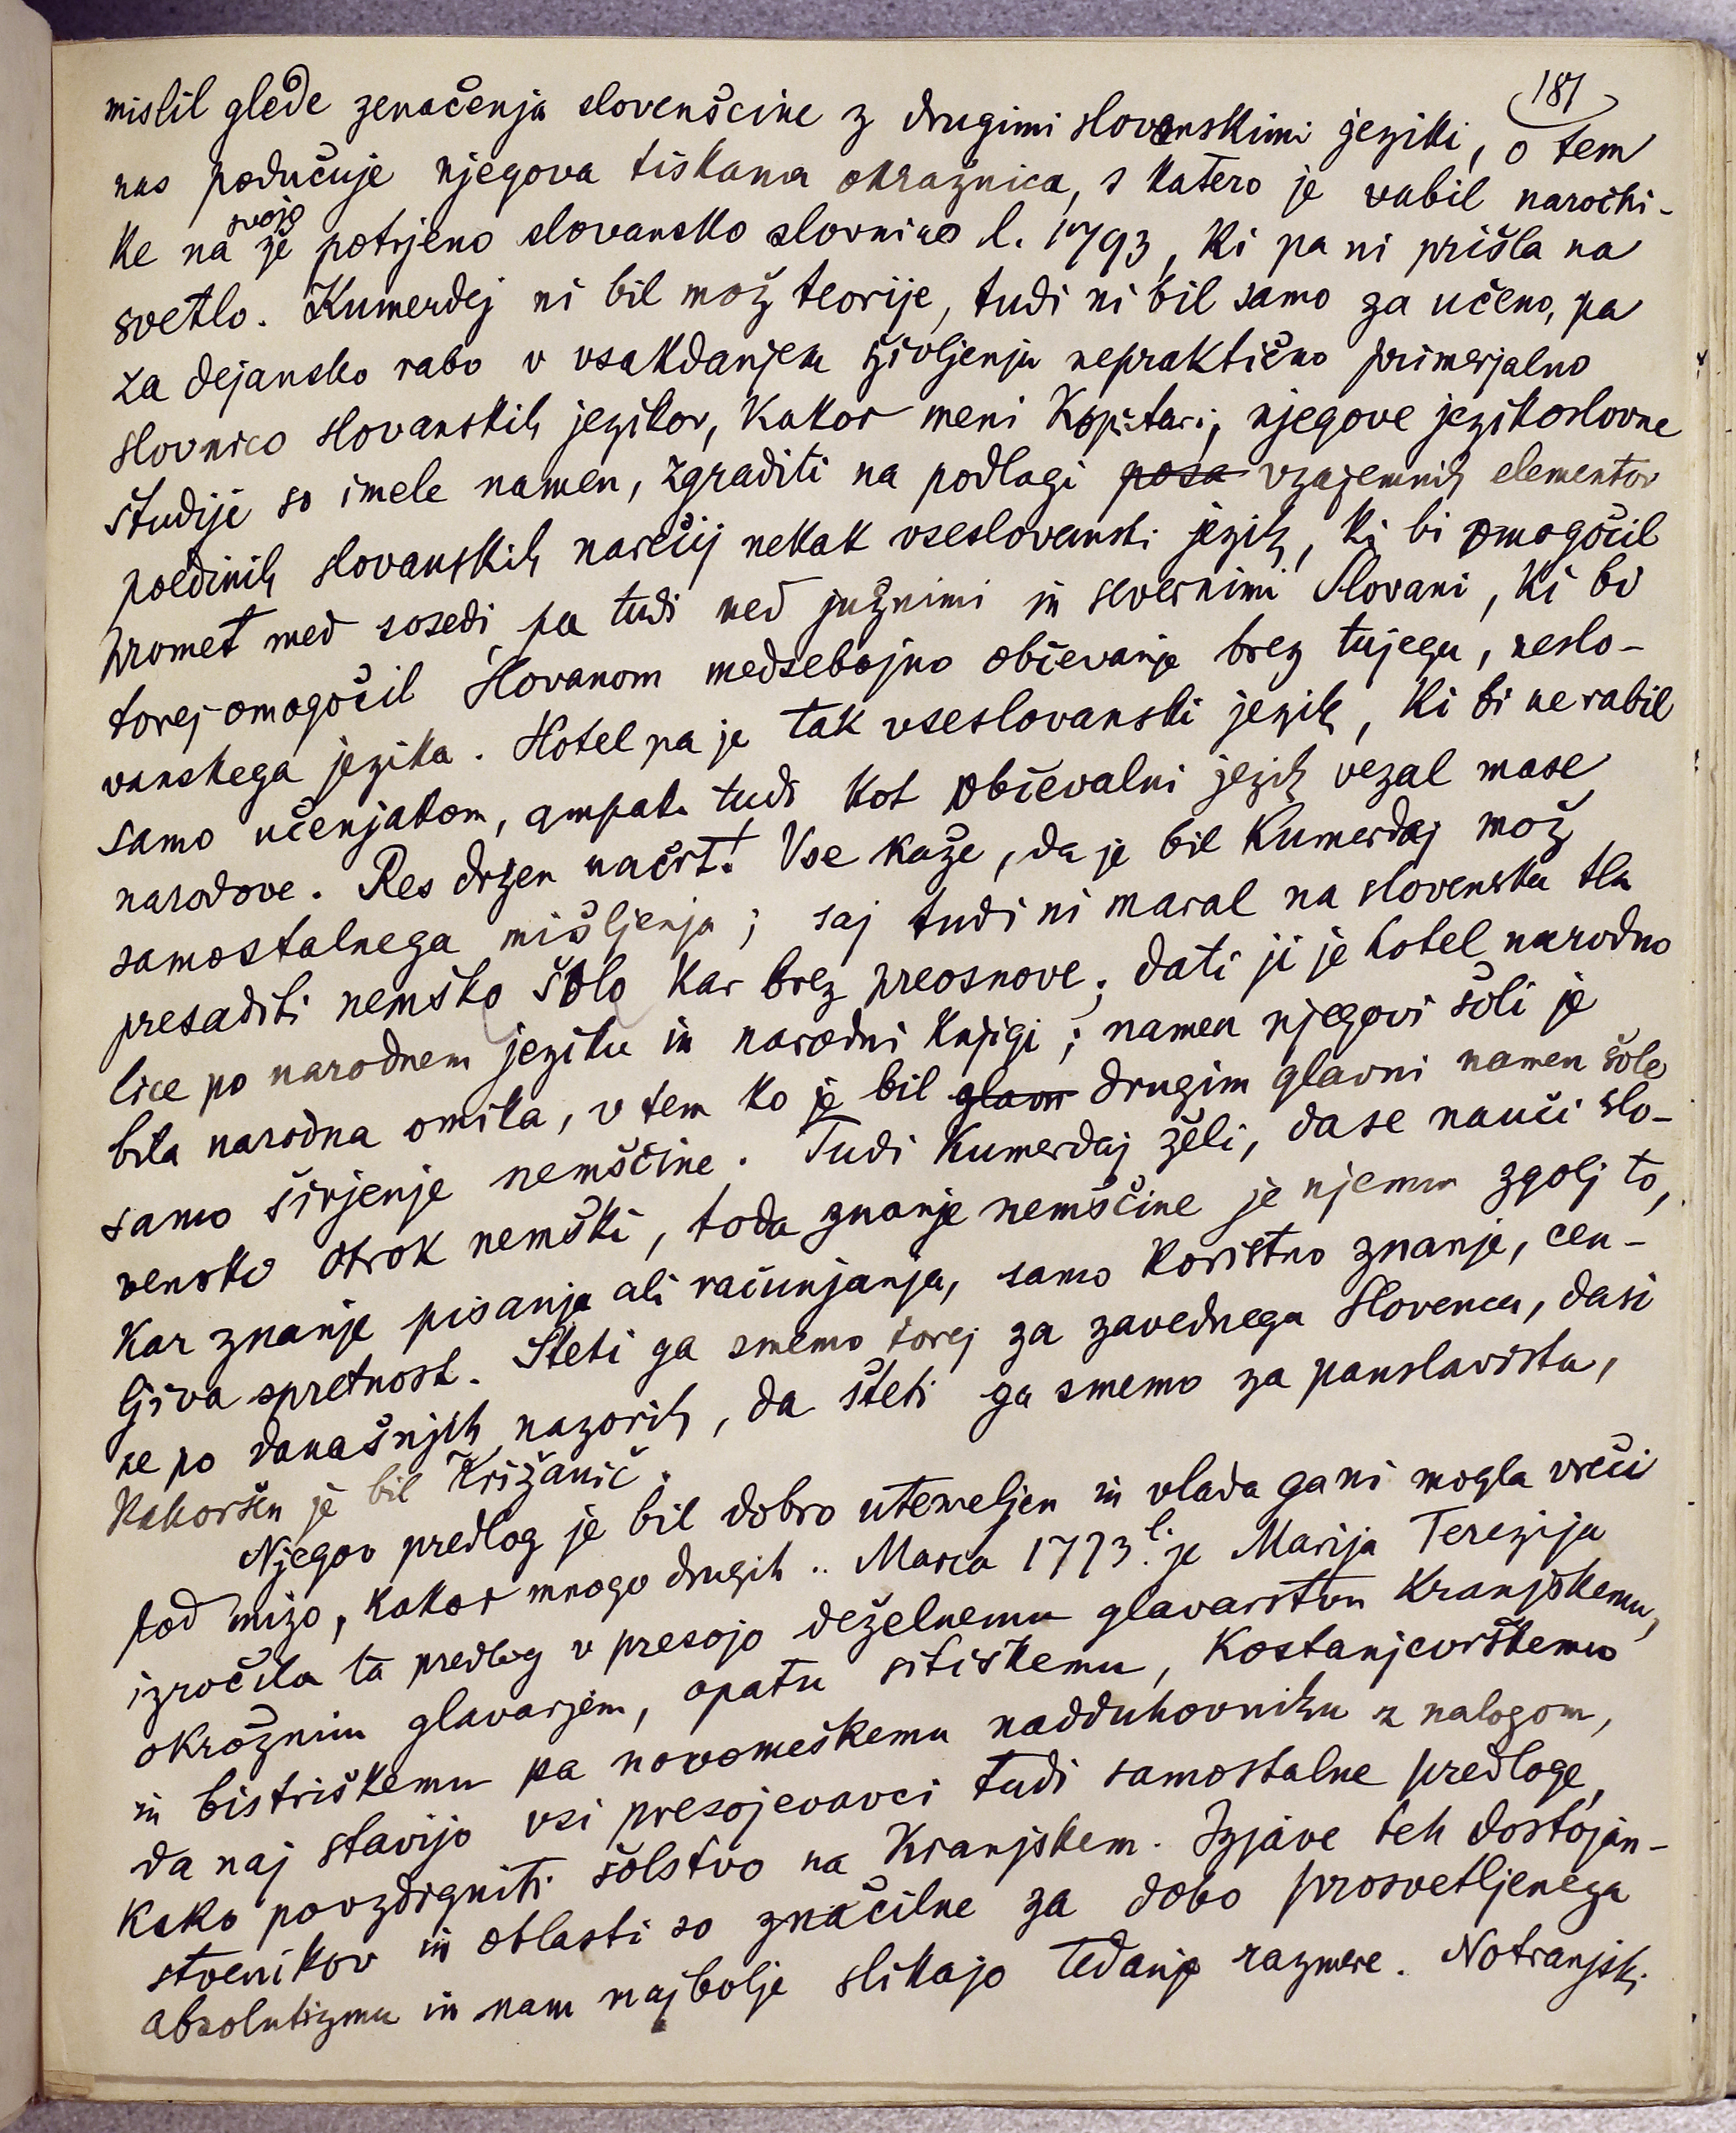 181
mislil glede zenačenja slovenščine z drugimi slovanskimi jeziki, o tem
nas podučuje njegova tiskana okrožnica, s katero je vabil naročni-
ke na svojo že potrjeno slovansko slovnico l. 1793, ki pa ni prišla na
svetlo. Kumerdej ni bil mož teorije, tudi ni bil samo za učeno, pa
za dejansko rabo v vsakdanjem življenju nepraktično primerjalno
slovnico slovanskih jezikov, kakor meni Kopitar; njegove jezikoslovne
študije so imele namen, zgraditi na podlagi posa vzajemnih elementov
poedinih slovanskih narečij nekak vseslovanski jezik, ki bi omogočil
promet med sosedi pa tudi med južnimi in severnimi Slovani, ki bi
torej omogočil Slovanom medsebojno občevanje brez tujega, neslo-
vanskega jezika. Hotel pa je tak vseslovanski jezik, ki bi ne rabil
samo učenjakom, ampak tudi kot občevalni jezik vezal mase
narodove. Res drzen načrt! Vse kaže, da je bil Kumerdaj mož
samostalnega mišljenja; saj tudi ni maral na slovenska tla
presaditi nemško šolo kar brez preosnove; dati ji je hotel narodno
lice po narodnem jeziku in narodni knjigi; namen njegovi šoli je
bila narodna omika, v tem ko je bil glavn drugim glavni namen šole
samo širjenje nemščine. Tudi Kumerdaj želi, da se nauči slo-
vensko otrok nemški, toda znanje nemščine je njemu zgolj to,
kar znanje pisanja ali računjanja, samo koristno znanje, cen-
ljiva spretnost. Šteti ga smemo torej za zavednega Slovenca, dasi
ne po današnjih nazorih, da šteti ga smemo za panslavista,
kakoršen je bil Križanič.
Njegov predlog je bil dobro utemeljen in vlada ga ni mogla vreči
pod mizo, kakor mnogo drugih.. Marca 1773 l. je Marija Terezija
izročila ta predlog v presojo deželnemu glavarstvu Kranjskemu,
okrožnim glavarjem, opatu sitiškemu, Kostanjevrškemu
in bistriškemu pa novomeškemu nadduhovniku z nalogom,
da naj stavijo vsi presojevavci tudi samostalne predloge,
kako povzdigniti šolstvo na Kranjskem. Izjave teh dostojan-
stvenikov in oblasti so značilne za dobo prosvetljenega
absolutizmu in nam najbolje slikajo tedanje razmere. Notranjski